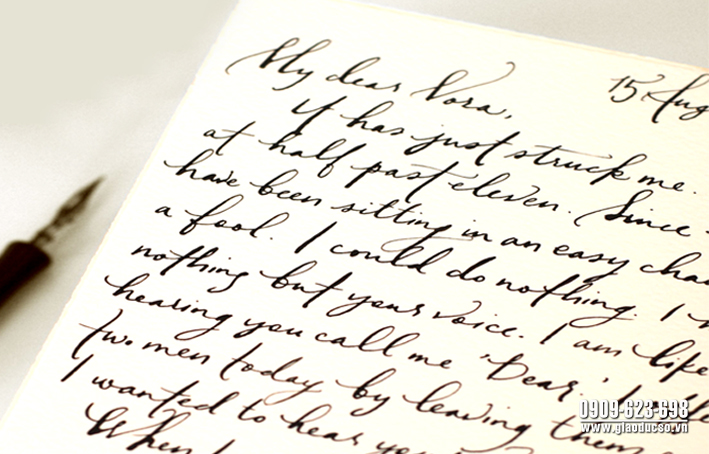 My dear Nora,
15 Aug
It has just struck me.
at half past eleven. Since
have been sitting in an easy chai
a fool. I could do nothing. I
nothing but your voice. I am like
hearing you call me 'Dear.' I
two men today by leaving them
I wanted to hear
When I
0909-623-698
www.giaoducso.vn